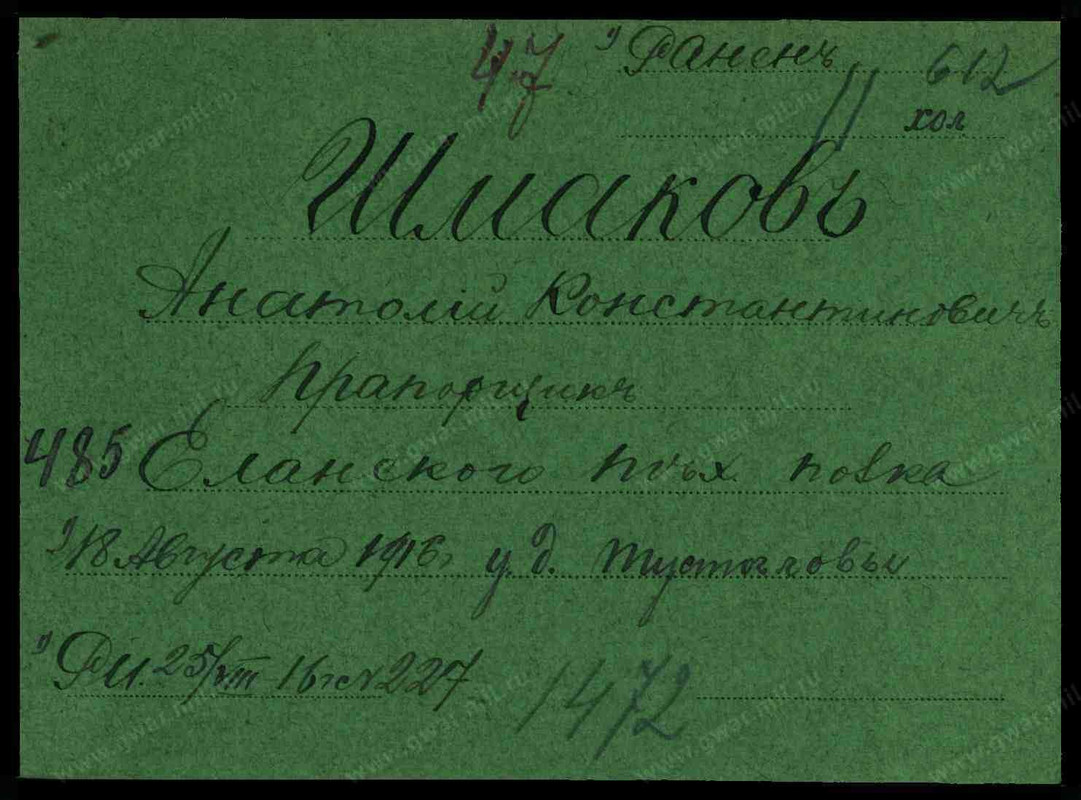 47 1) Раненъ 612
11 хол
Шмаковъ
Анатолій Константиновичъ
Прапорщикъ
485 Еланского пѣх. полка
1) 18 Августа 1916г. у д. Тустаговы
1) 25/VIII 16г № 227 1472